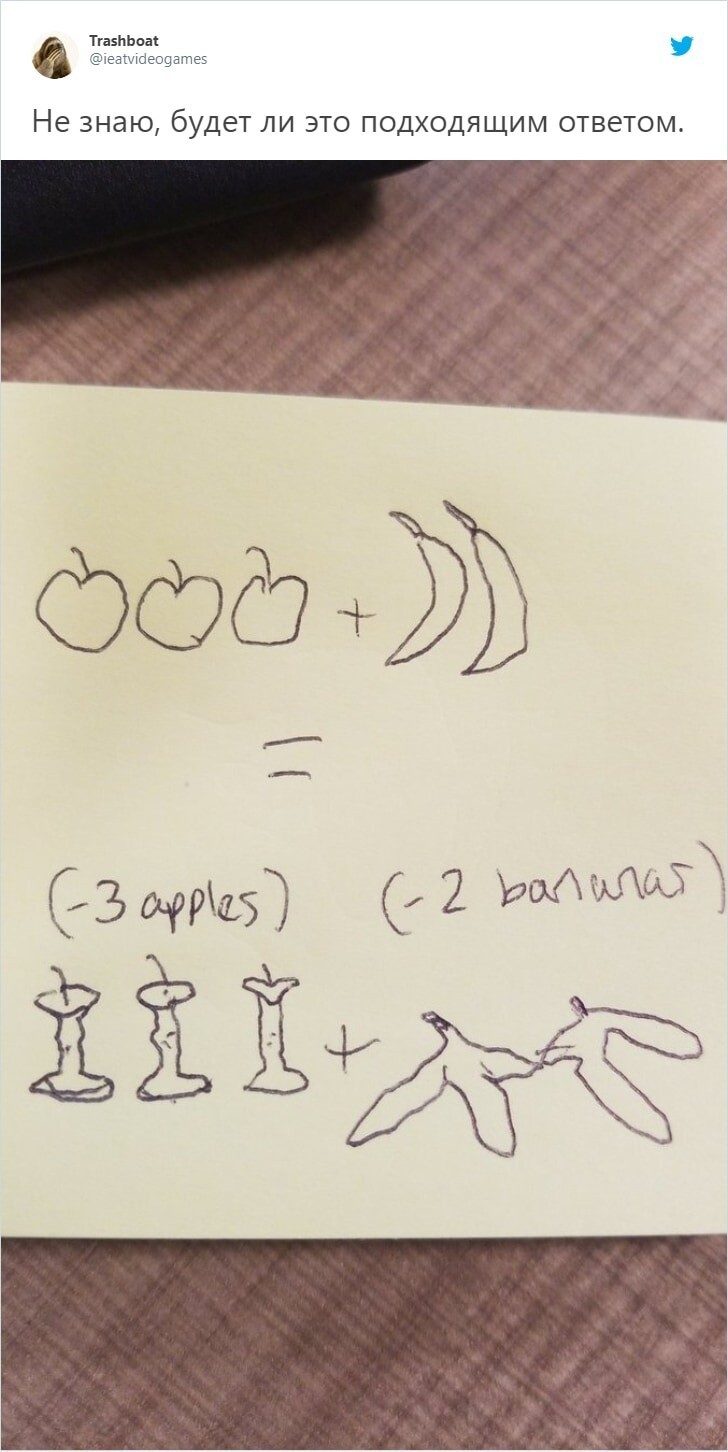 Trashboat
@ieatvideogames
Не знаю, будет ли это подходящим ответом.
+
=
(-3 apples) (-2 bananas)
+